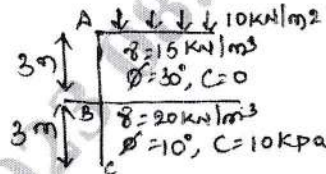 A 10KN/m2
3m
γ=15 KN/m3
Ø=30°, C=0
B
3m
γ=20KN/m3
Ø=10°, C=10kpa
C